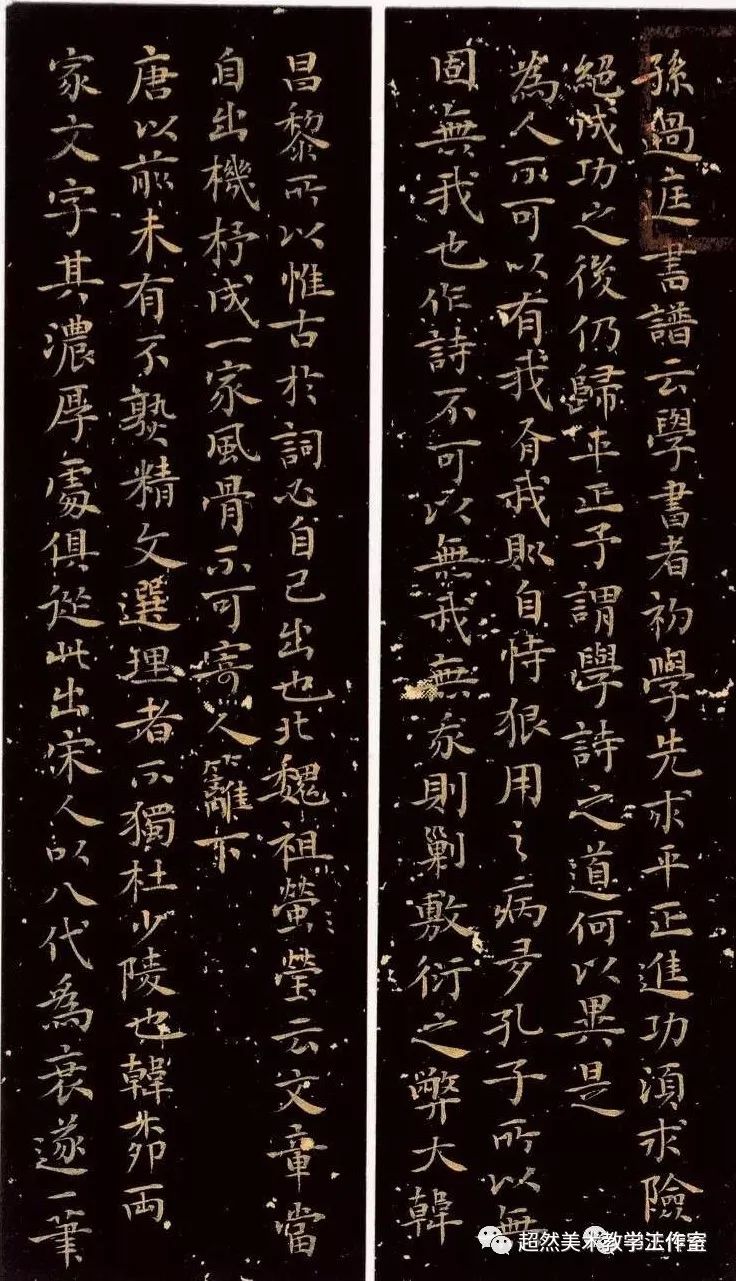 孫過庭書譜云學書者初學先求平正進功須求險
絕成功之後仍歸平正予謂學詩之道何以異是
為人不可以有我有我則自恃狠用之病多孔子所以無
固無我也作詩不可以無我無我則剿敷衍之弊大韓
昌黎所以惟古於詞必自己出也北魏祖螢瑩云文章當
自出機杼成一家風骨不可寄人籬下
唐以前未有不熟精文選理者不獨杜少陵也韓柳兩
家文字其濃厚處俱從此出宋人以八代為衰遂一筆
超然美术教学法作室